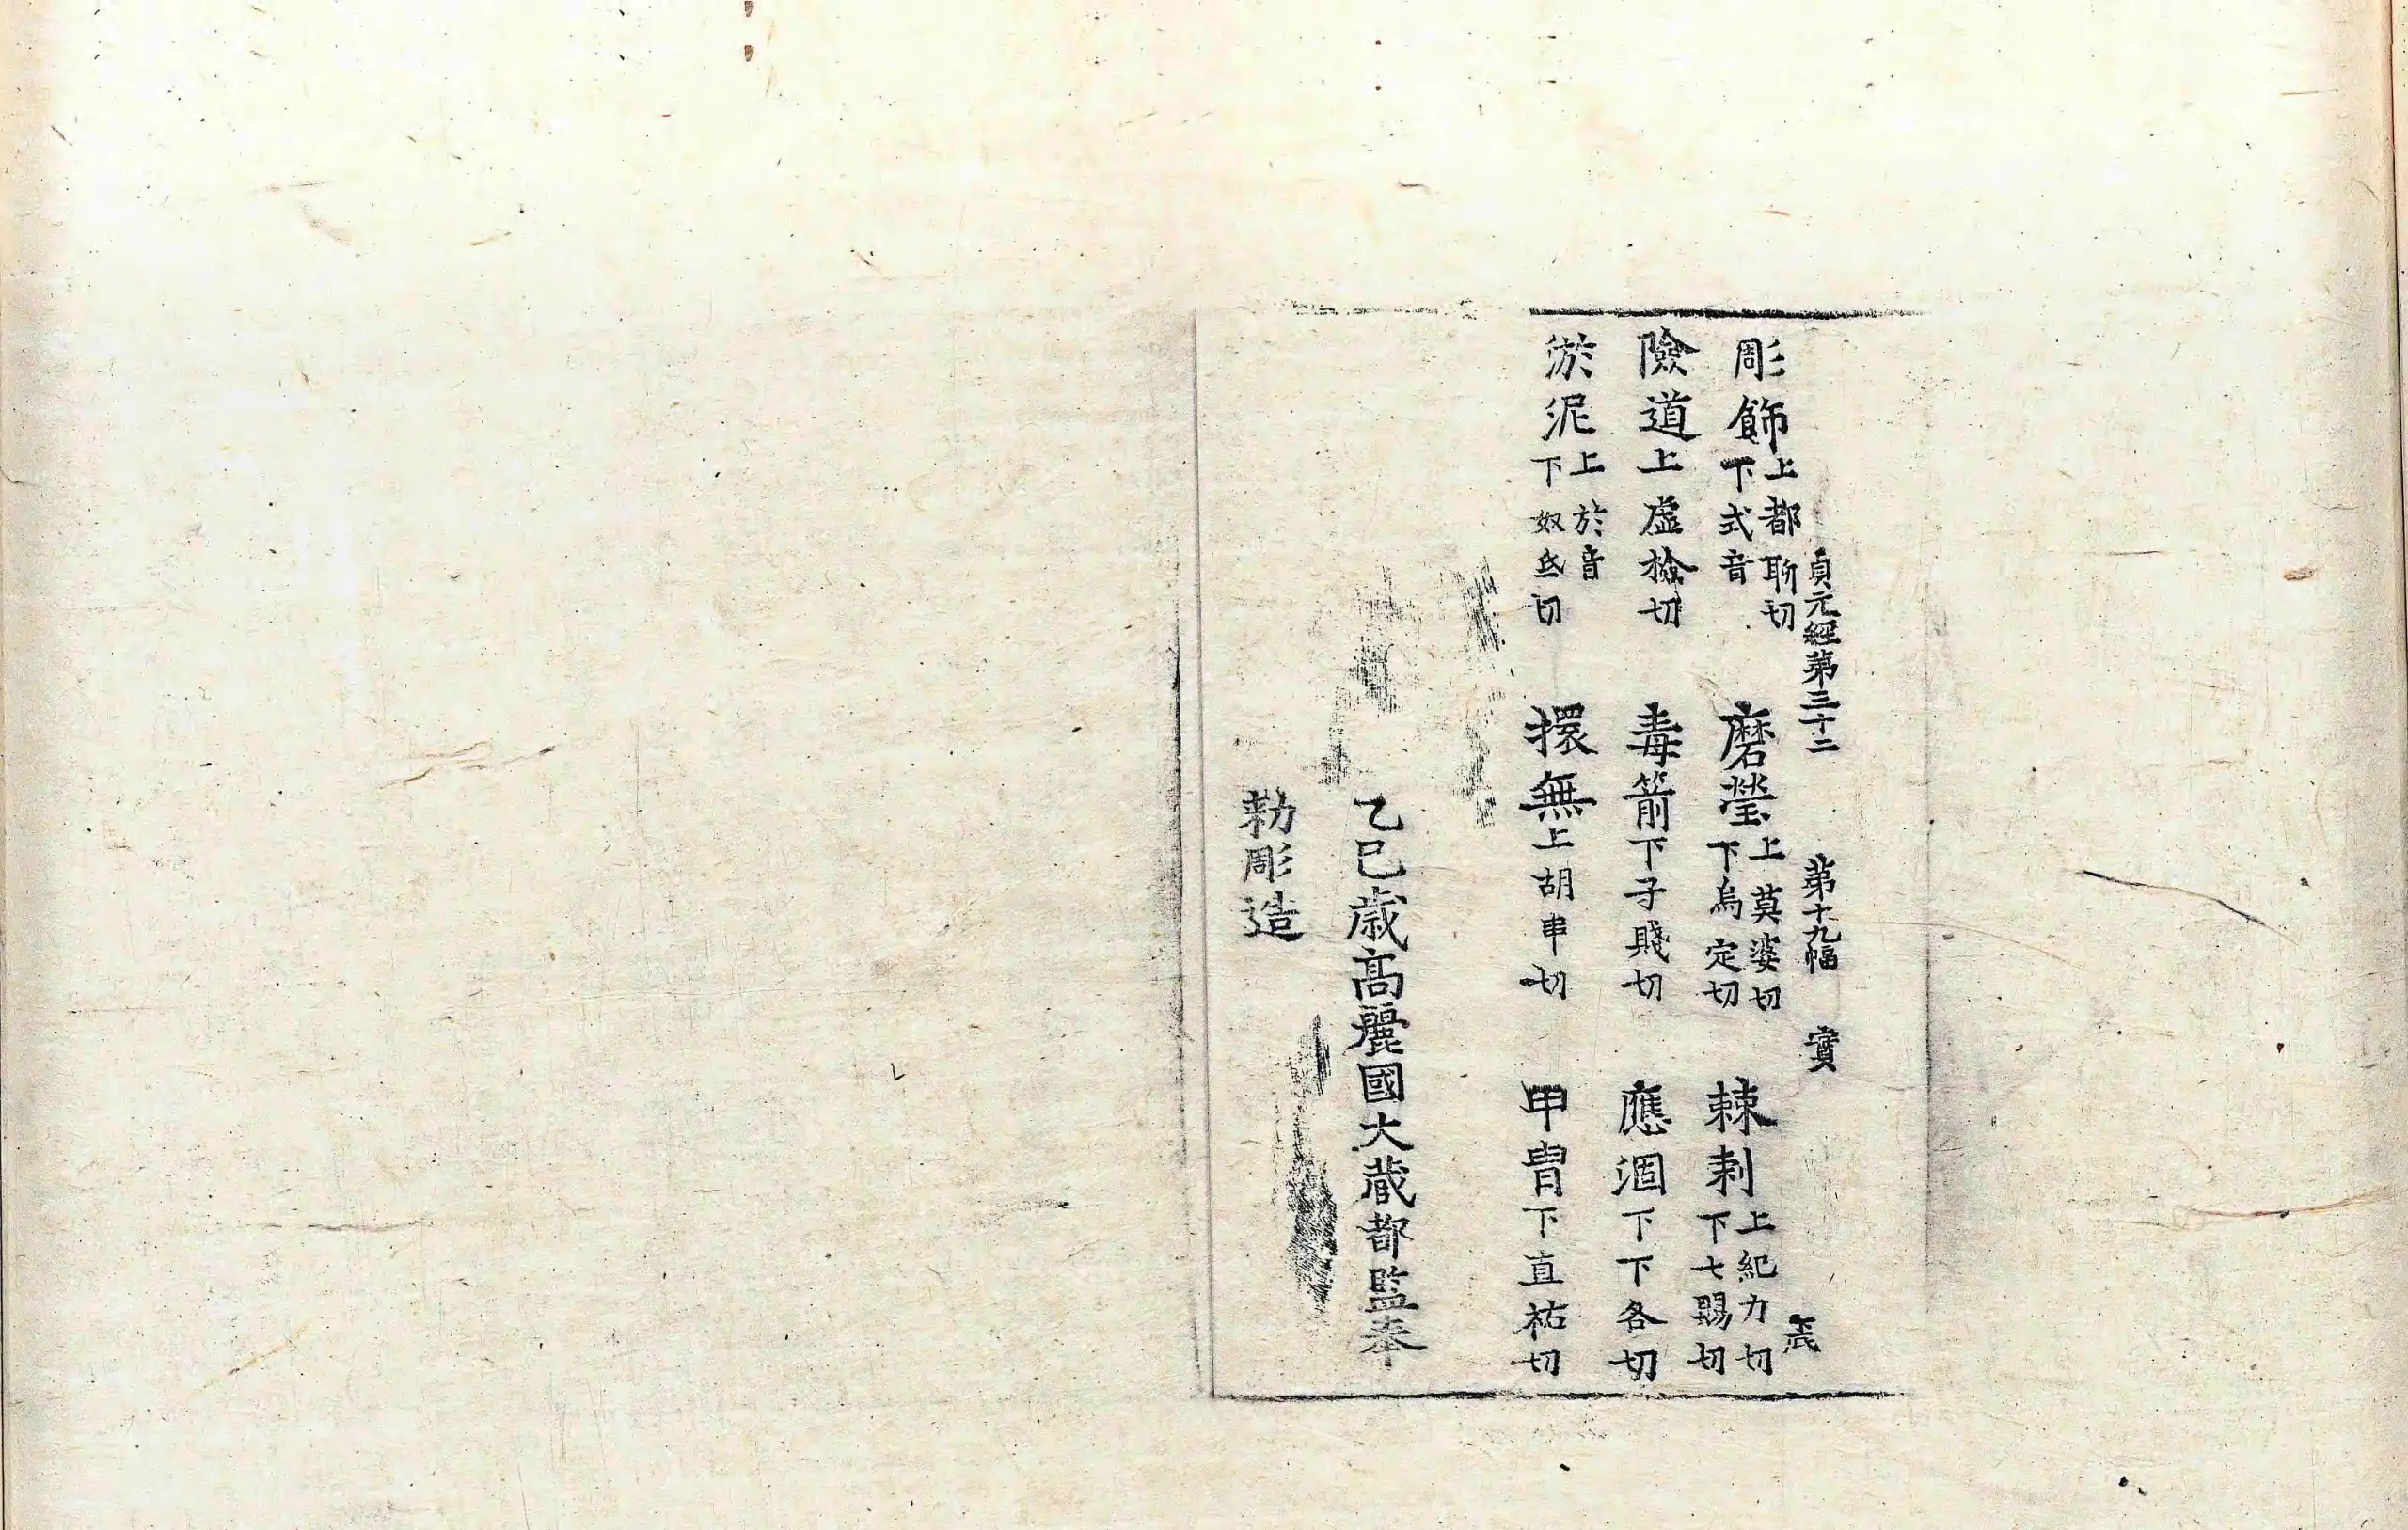 貞元經第三十二 第十九幅 實
彫飾上都聊切下式音 磨瑩上莫婆切下烏定切 棘刺上紀力切下七賜切
險道上虛檢切 毒箭下子賤切 應涸下下各切
淤泥上於音下奴氐切 擐無上胡串切 甲冑下直祐切
乙巳歲高麗國大藏都監奉
勑彫造